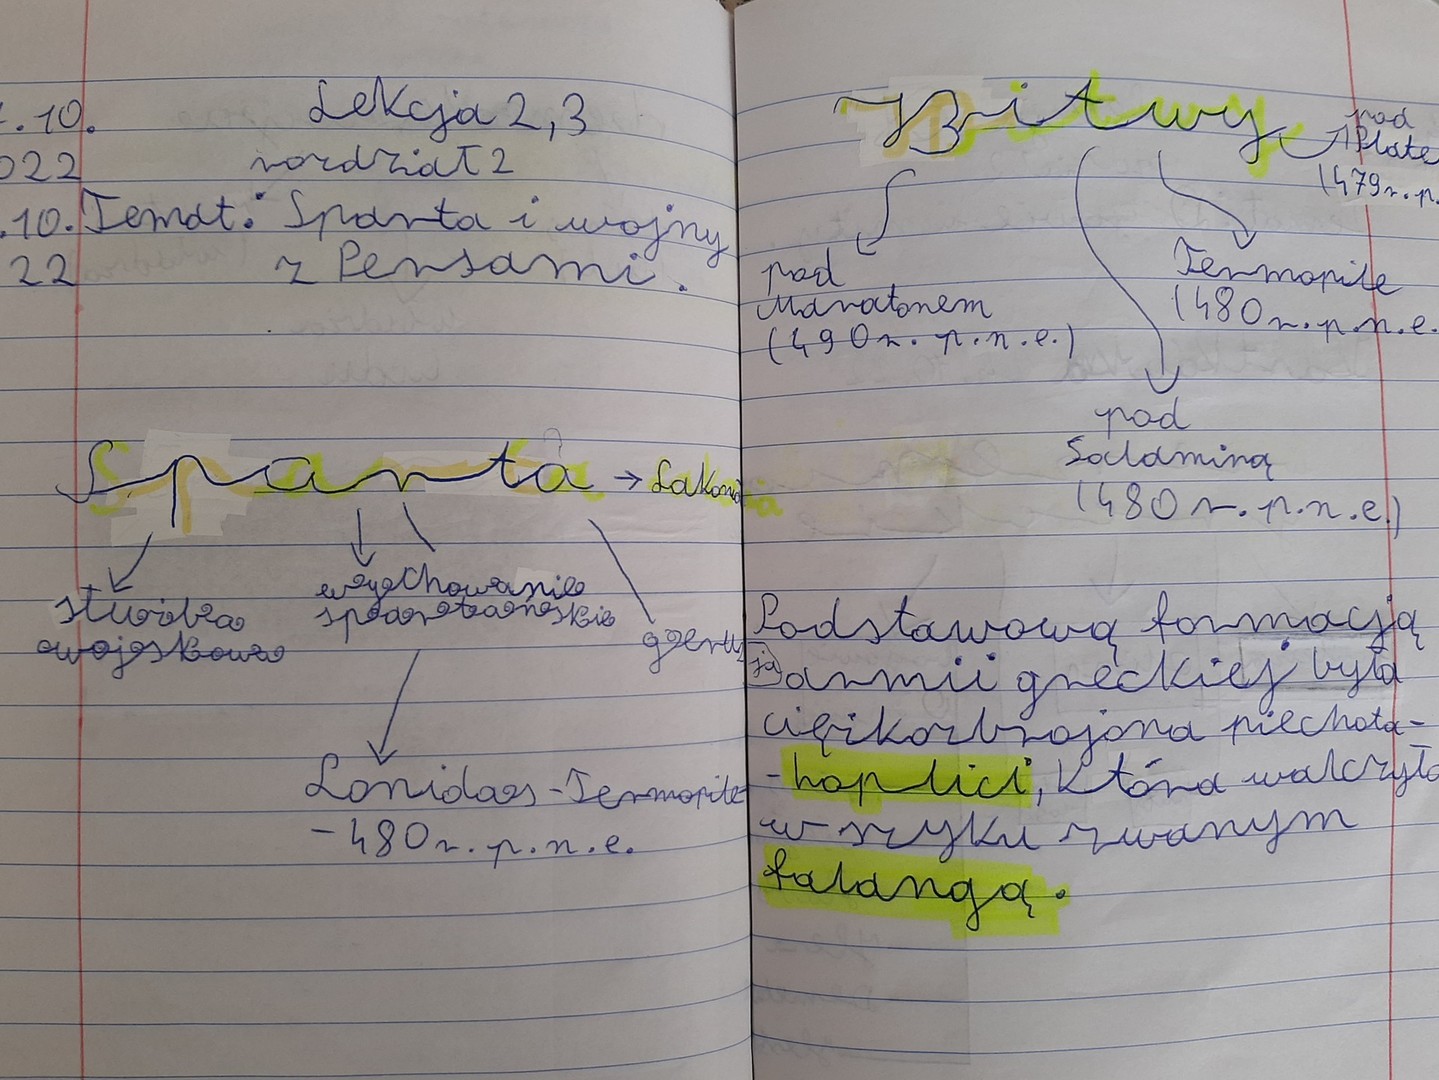 .10.
Lekcja 2,3
022
rozdział 2
.10. Temat: Sparta i wojny
22
z Persami.
Sparta → Lakonia
służba
wojskowa
wychowanie
spartańskie
geru
zja
Lonidas - Termopile
- 480 r. p. n. e.
Bitwy
pod
Plate
(479 r. p.
pod
Maratonem
(490 r. p. n. e.)
Termopile
(480 r. p. n. e.
pod
Salaminą
(480 r. p. n. e.)
Podstawową formacją
armii greckiej była
ciężkozbrojona piechota -
- hoplici, która walczyła
w szyku zwanym
falangą.